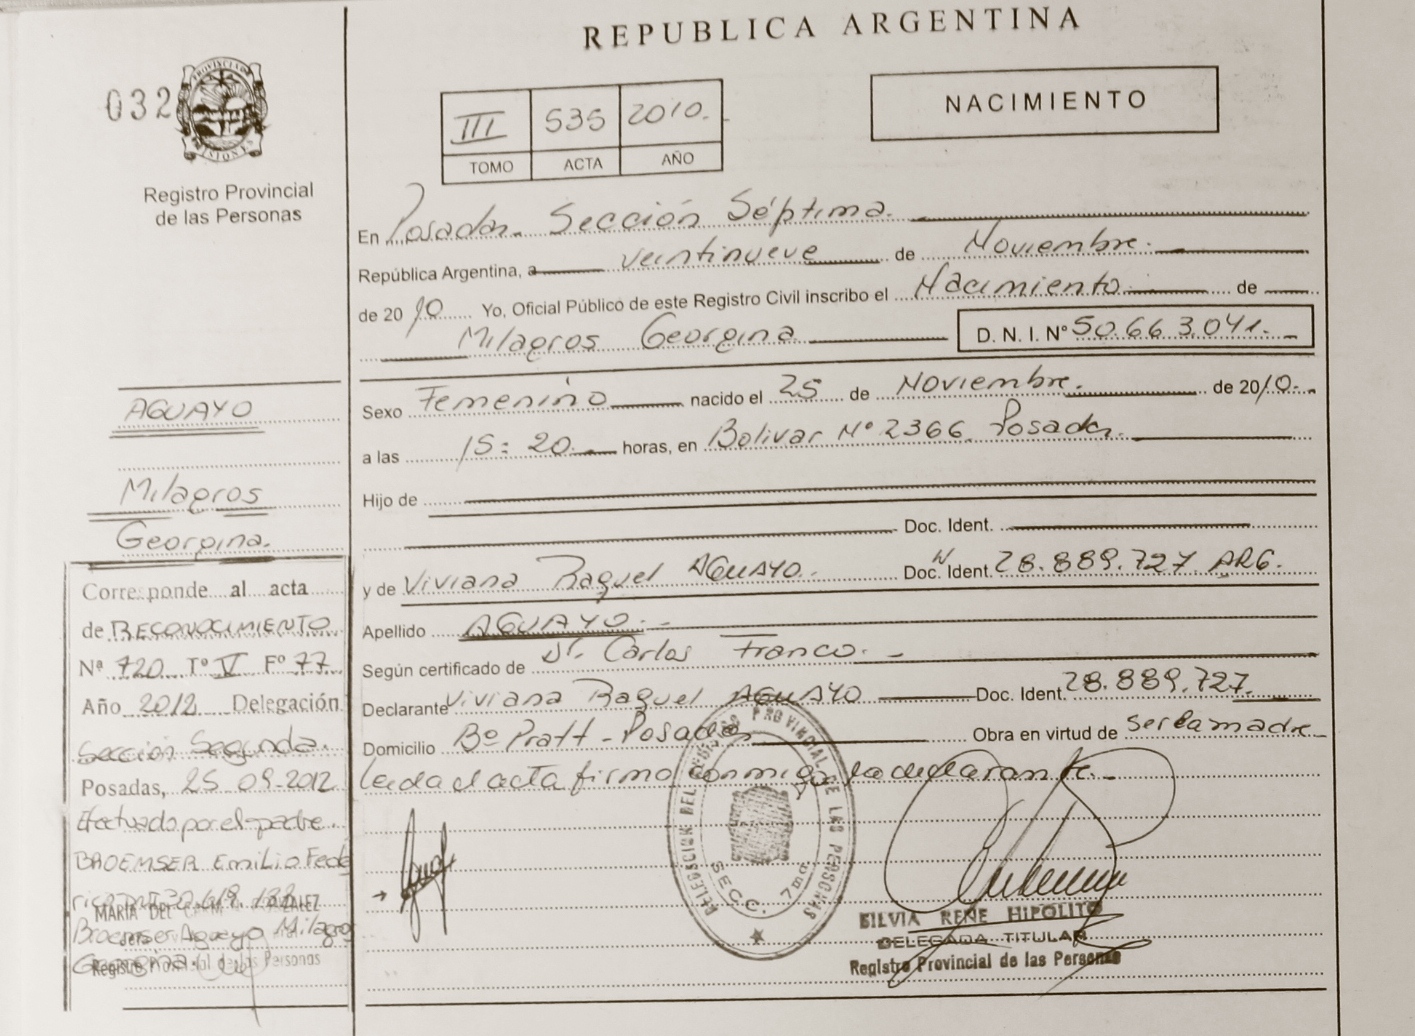 REPUBLICA ARGENTINA
032
PROVINCIA
MISIONES
Registro Provincial
de las Personas
III 535 2010.
TOMO ACTA AÑO
NACIMIENTO
En Posadas. Sección Séptima.
República Argentina, a veintinueve de Noviembre.
de 2010 Yo, Oficial Público de este Registro Civil inscribo el Nacimiento de
Milagros Georgina
D. N. I. Nº 50.663.041.-
Sexo Femenino nacido el 25 de Noviembre. de 2010.-
a las 15:20. horas, en Bolivar Nº 2366 Posadas.
Hijo de
Doc. Ident.
y de Viviana Raquel AGUAYO.- Doc. Ident. 28.889.727 ARG.
Apellido AGUAYO.-
Según certificado de Dr. Carlos Franco.-
Declarante Viviana Raquel AGUAYO Doc. Ident. 28.889.727
Domicilio Bº Pratt - Posadas Obra en virtud de ser la madre
Leida el acta firma conmigo la declarante.-
AGUAYO
Milagros
Georgina.
Corresponde al acta
de RECONOCIMIENTO
Nª 720 Tº V Fº 77
Año 2012 Delegación
Sección Segunda.
Posadas, 25-09-2012
Efectuado por el padre.
BROEMSER Emilio Fede
rico
MARIA DEL
Broemser Aguayo Milagros
Georgina.
Registro Provincial de las Personas
DELEGACION DEL REGISTRO PROVINCIAL DE LAS PERSONAS
SECC. 7ma
SILVIA RENE HIPOLITO
DELEGADA TITULAR
Registro Provincial de las Personas